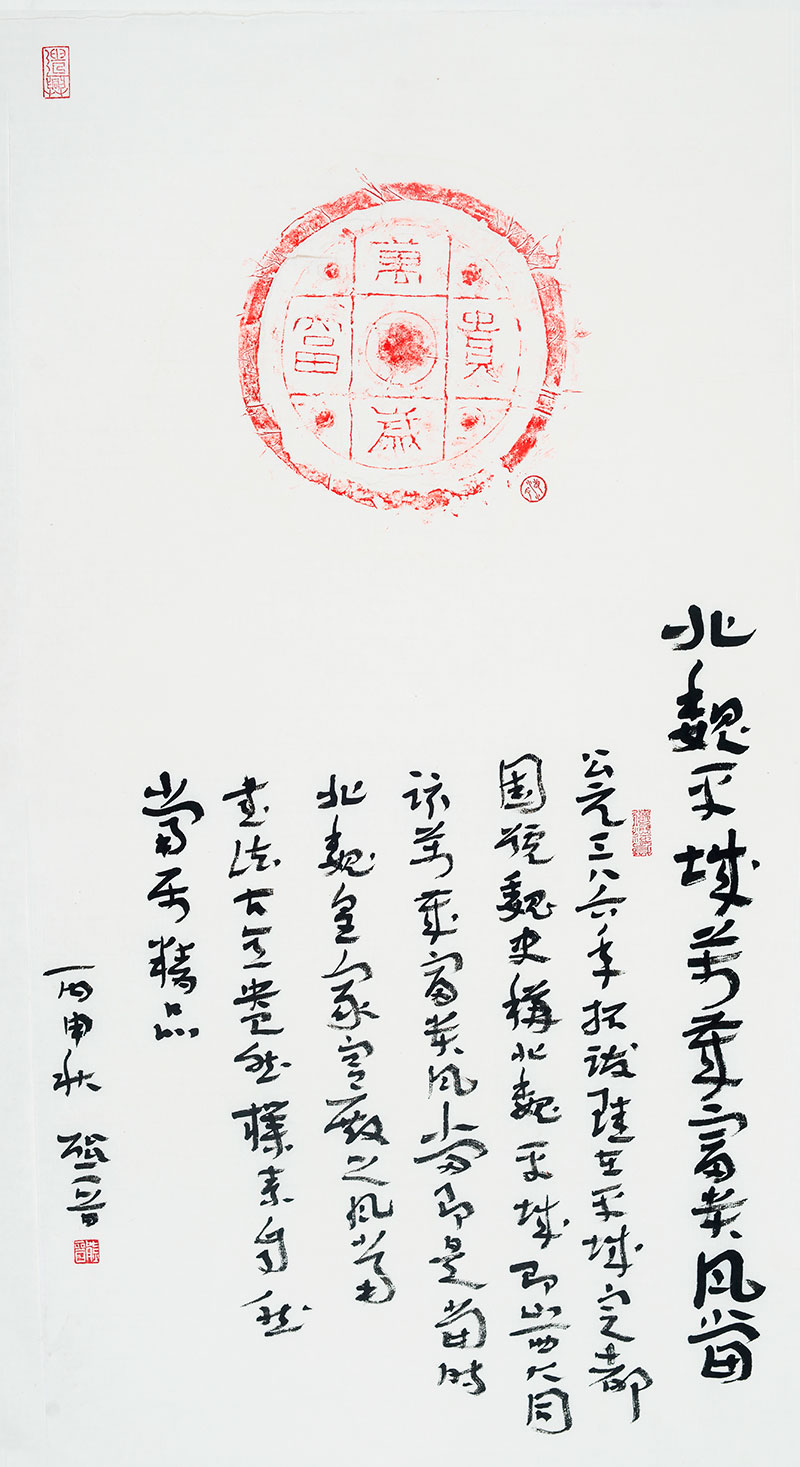 萬歲富貴
北魏平城萬歲富貴瓦當
公元三八六年拓跋珪在平城定都
國號魏史稱北魏平城即山西大同
該萬歲富貴瓦當即是當時
北魏皇家宮殿之瓦當
書法古意盎然樸素自然
當屬精品
丙申秋 晉